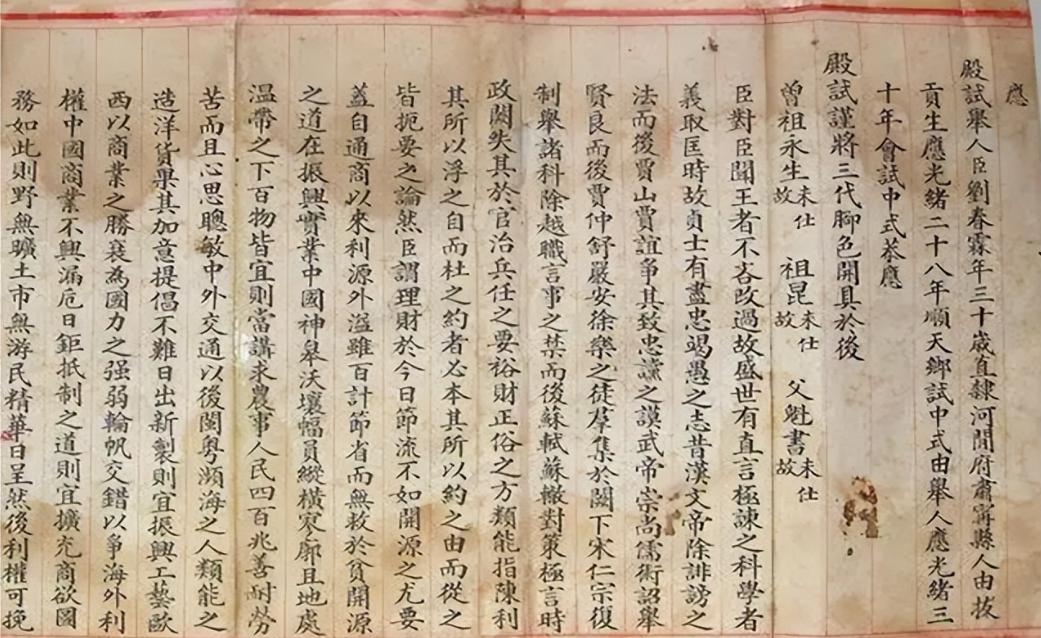 應
殿試舉人臣劉春霖年三十歲直隸河間府肅寧縣人由拔
貢生應光緒二十八年順天鄉試中式由舉人應光緒三
十年會試中式恭應
殿試謹將三代腳色開具於後
曾祖永生未仕故 祖昆未仕故 父魁書未仕故
臣對臣聞王者不吝改過故盛世有直言極諫之科學者
義取匡時故貞士有盡忠竭愚之志昔漢文帝除誹謗之
法而後賈山賈誼爭其致忠讜之謨武帝崇尚儒術詔舉
賢良而後賈仲舒嚴安徐樂之徒羣集於闕下宋仁宗復
制舉諸科除越職言事之禁而後蘇軾蘇轍對策極言時
政闕失其於官治兵任之要裕財正俗之方類能指陳利
其所以浮之自而杜之約者必本其所以約之由而從之
皆扼要之論然臣謂理財於今日節流不如開源之尤要
蓋自通商以來利源外溢雖百計節省而無救於貧開源
之道在振興實業中國神皋沃壤幅員縱橫寥廓且地處
溫帶之下百物皆宜則當講求農事人民四百兆善耐勞
苦而且心思聰敏中外交通以後閩粤瀕海之人類能之
造洋貨果其加意提倡不難日出新製則宜振興工藝歐
西以商業之勝衰為國力之强弱輪帆交錯以爭海外利
權中國商業不興漏卮日鉅抵制之道則宜擴充商欲圖
務如此則野無曠土市無游民精華日呈然後利權可挽